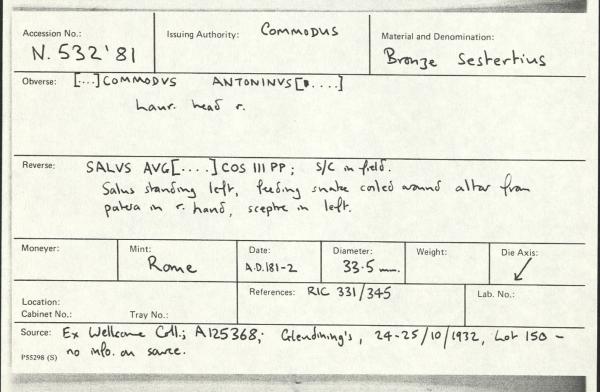 Accession No.: N. 532'81
Issuing Authority: COMMODUS
Material and Denomination: Bronze Sestertius
Obverse: [....]COMMODVS ANTONINVS[.....]
Laur. head r.
Reverse: SALVS AVG[.....] COS III PP; S/C in field.
Salus standing left, feeding snake coiled around altar from
patera in r. hand, sceptre in left.
Moneyer:
Mint: Rome
Date: A.D. 181-2
Diameter: 33.5 mm.
Weight:
Die Axis: ↙
Location:
Cabinet No.: Tray No.:
References: RIC 331/345
Lab. No.:
Source: Ex Wellcome Coll.; A125368; Glendining's, 24-25/10/1932, Lot 150 –
P55298 (S) no info. on source.